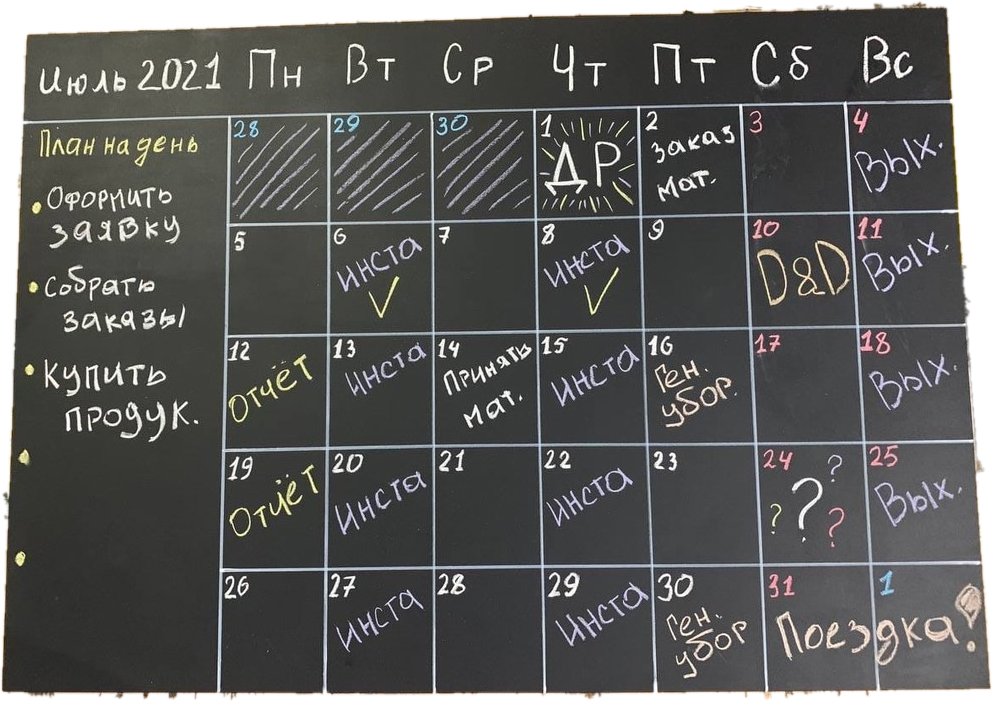 Июль 2021 Пн Вт Ср Чт Пт Сб Вс
План на день
• Оформить
заявку
• Собрать
заказы
• Купить
продук.
28 29 30 1 2 3 4
ДР
заказ
мат.
Вых.
5 6 7 8 9 10 11
Инста
Инста
D&D
Вых.
12 13 14 15 16 17 18
Отчёт
Инста
Принять
мат.
Инста
Ген.
убор.
Вых.
19 20 21 22 23 24 25
Отчёт
Инста
Инста
? ? ? ?
Вых.
26 27 28 29 30 31 1
Инста
Инста
Ген.
убор
Поездка!